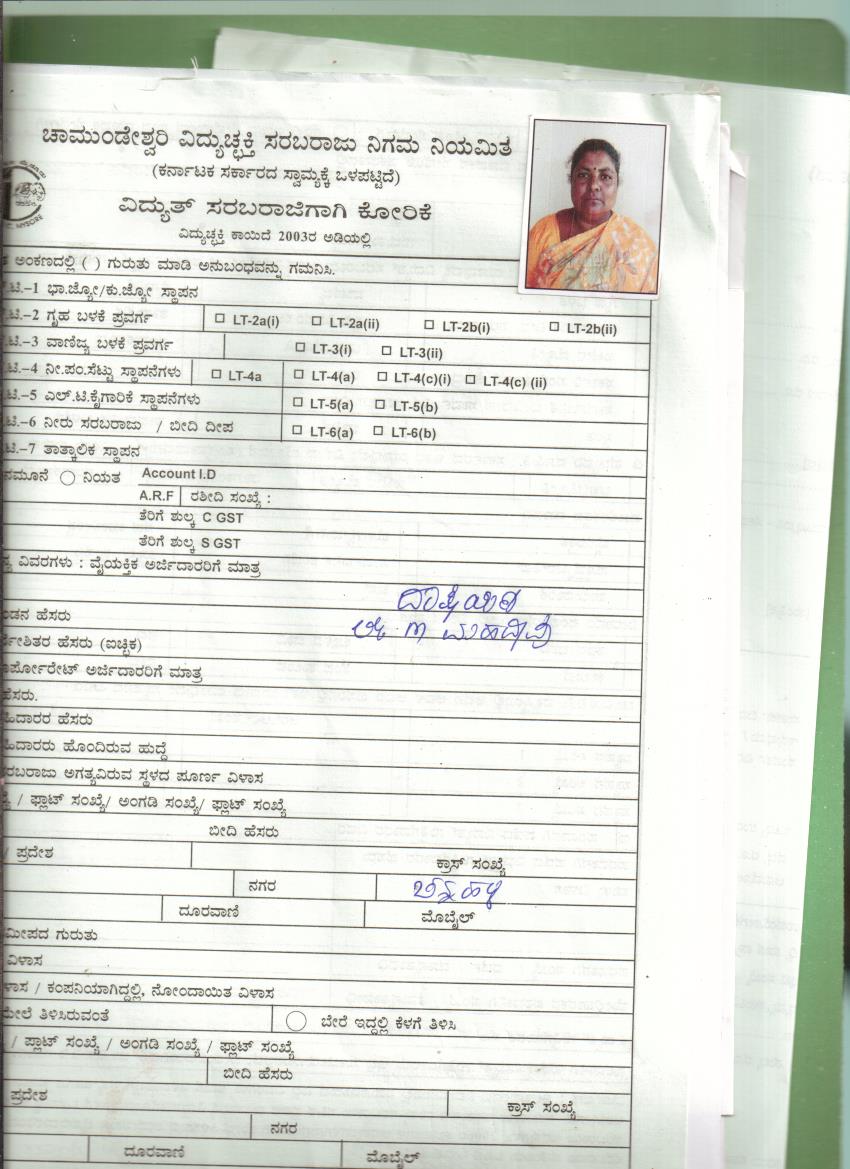 ಚಾಮುಂಡೇಶ್ವರಿ ವಿದ್ಯುಚ್ಛಕ್ತಿ ಸರಬರಾಜು ನಿಗಮ ನಿಯಮಿತ
(ಕರ್ನಾಟಕ ಸರ್ಕಾರದ ಸ್ವಾಮ್ಯಕ್ಕೆ ಒಳಪಟ್ಟಿದೆ)
ವಿದ್ಯುತ್ ಸರಬರಾಜಿಗಾಗಿ ಕೋರಿಕೆ
ವಿದ್ಯುಚ್ಛಕ್ತಿ ಕಾಯಿದೆ 2003ರ ಅಡಿಯಲ್ಲಿ
ಅಂಕಣದಲ್ಲಿ ( ) ಗುರುತು ಮಾಡಿ ಅನುಬಂಧವನ್ನು ಗಮನಿಸಿ.
.ಟಿ.–1 ಭಾ.ಜ್ಯೋ/ಕು.ಜ್ಯೋ ಸ್ಥಾಪನ
.ಟಿ.–2 ಗೃಹ ಬಳಕೆ ಪ್ರವರ್ಗ ☐ LT-2a(i) ☐ LT-2a(ii) ☐ LT-2b(i) ☐ LT-2b(ii)
.ಟಿ.–3 ವಾಣಿಜ್ಯ ಬಳಕೆ ಪ್ರವರ್ಗ ☐ LT-3(i) ☐ LT-3(ii)
.ಟಿ.–4 ನೀ.ಪಂ.ಸೆಟ್ಟು ಸ್ಥಾಪನೆಗಳು ☐ LT-4a ☐ LT-4(a) ☐ LT-4(c)(i) ☐ LT-4(c) (ii)
.ಟಿ.–5 ಎಲ್.ಟಿ.ಕೈಗಾರಿಕೆ ಸ್ಥಾಪನೆಗಳು ☐ LT-5(a) ☐ LT-5(b)
.ಟಿ.–6 ನೀರು ಸರಬರಾಜು / ಬೀದಿ ದೀಪ ☐ LT-6(a) ☐ LT-6(b)
.ಟಿ.–7 ತಾತ್ಕಾಲಿಕ ಸ್ಥಾಪನ
ನಮೂನೆ ನಿಯತ Account I.D
A.R.F ರಶೀದಿ ಸಂಖ್ಯೆ :
ತೆರಿಗೆ ಶುಲ್ಕ C GST
ತೆರಿಗೆ ಶುಲ್ಕ S GST
ವಿವರಗಳು : ವೈಯಕ್ತಿಕ ಅರ್ಜಿದಾರರಿಗೆ ಮಾತ್ರ
ಂಡನ ಹೆಸರು
ರ್ದೇಶಿತರ ಹೆಸರು (ಐಚ್ಛಿಕ)
ರ್ಪೋರೇಟ್ ಅರ್ಜಿದಾರರಿಗೆ ಮಾತ್ರ
ಹೆಸರು.
ಹಿದಾರರ ಹೆಸರು
ಹಿದಾರರು ಹೊಂದಿರುವ ಹುದ್ದೆ
ರಬರಾಜು ಅಗತ್ಯವಿರುವ ಸ್ಥಳದ ಪೂರ್ಣ ವಿಳಾಸ
/ ಫ್ಲಾಟ್ ಸಂಖ್ಯೆ/ ಅಂಗಡಿ ಸಂಖ್ಯೆ/ ಫ್ಲಾಟ್ ಸಂಖ್ಯೆ
ಬೀದಿ ಹೆಸರು
/ ಪ್ರದೇಶ ಕ್ರಾಸ್ ಸಂಖ್ಯೆ
ನಗರ
ದೂರವಾಣಿ ಮೊಬೈಲ್
ಮೀಪದ ಗುರುತು
ವಿಳಾಸ
ಳಾಸ / ಕಂಪನಿಯಾಗಿದ್ದಲ್ಲಿ, ನೋಂದಾಯಿತ ವಿಳಾಸ
ಮೇಲೆ ತಿಳಿಸಿರುವಂತೆ ಬೇರೆ ಇದ್ದಲ್ಲಿ ಕೆಳಗೆ ತಿಳಿಸಿ
/ ಪ್ಲಾಟ್ ಸಂಖ್ಯೆ / ಅಂಗಡಿ ಸಂಖ್ಯೆ / ಫ್ಲಾಟ್ ಸಂಖ್ಯೆ
ಬೀದಿ ಹೆಸರು
ಪ್ರದೇಶ ಕ್ರಾಸ್ ಸಂಖ್ಯೆ
ನಗರ
ದೂರವಾಣಿ ಮೊಬೈಲ್